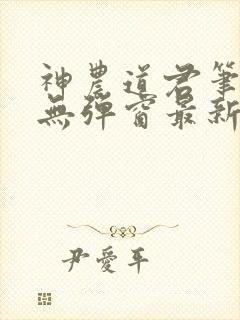 神農道君筆
無彈窗最新
尹愛平